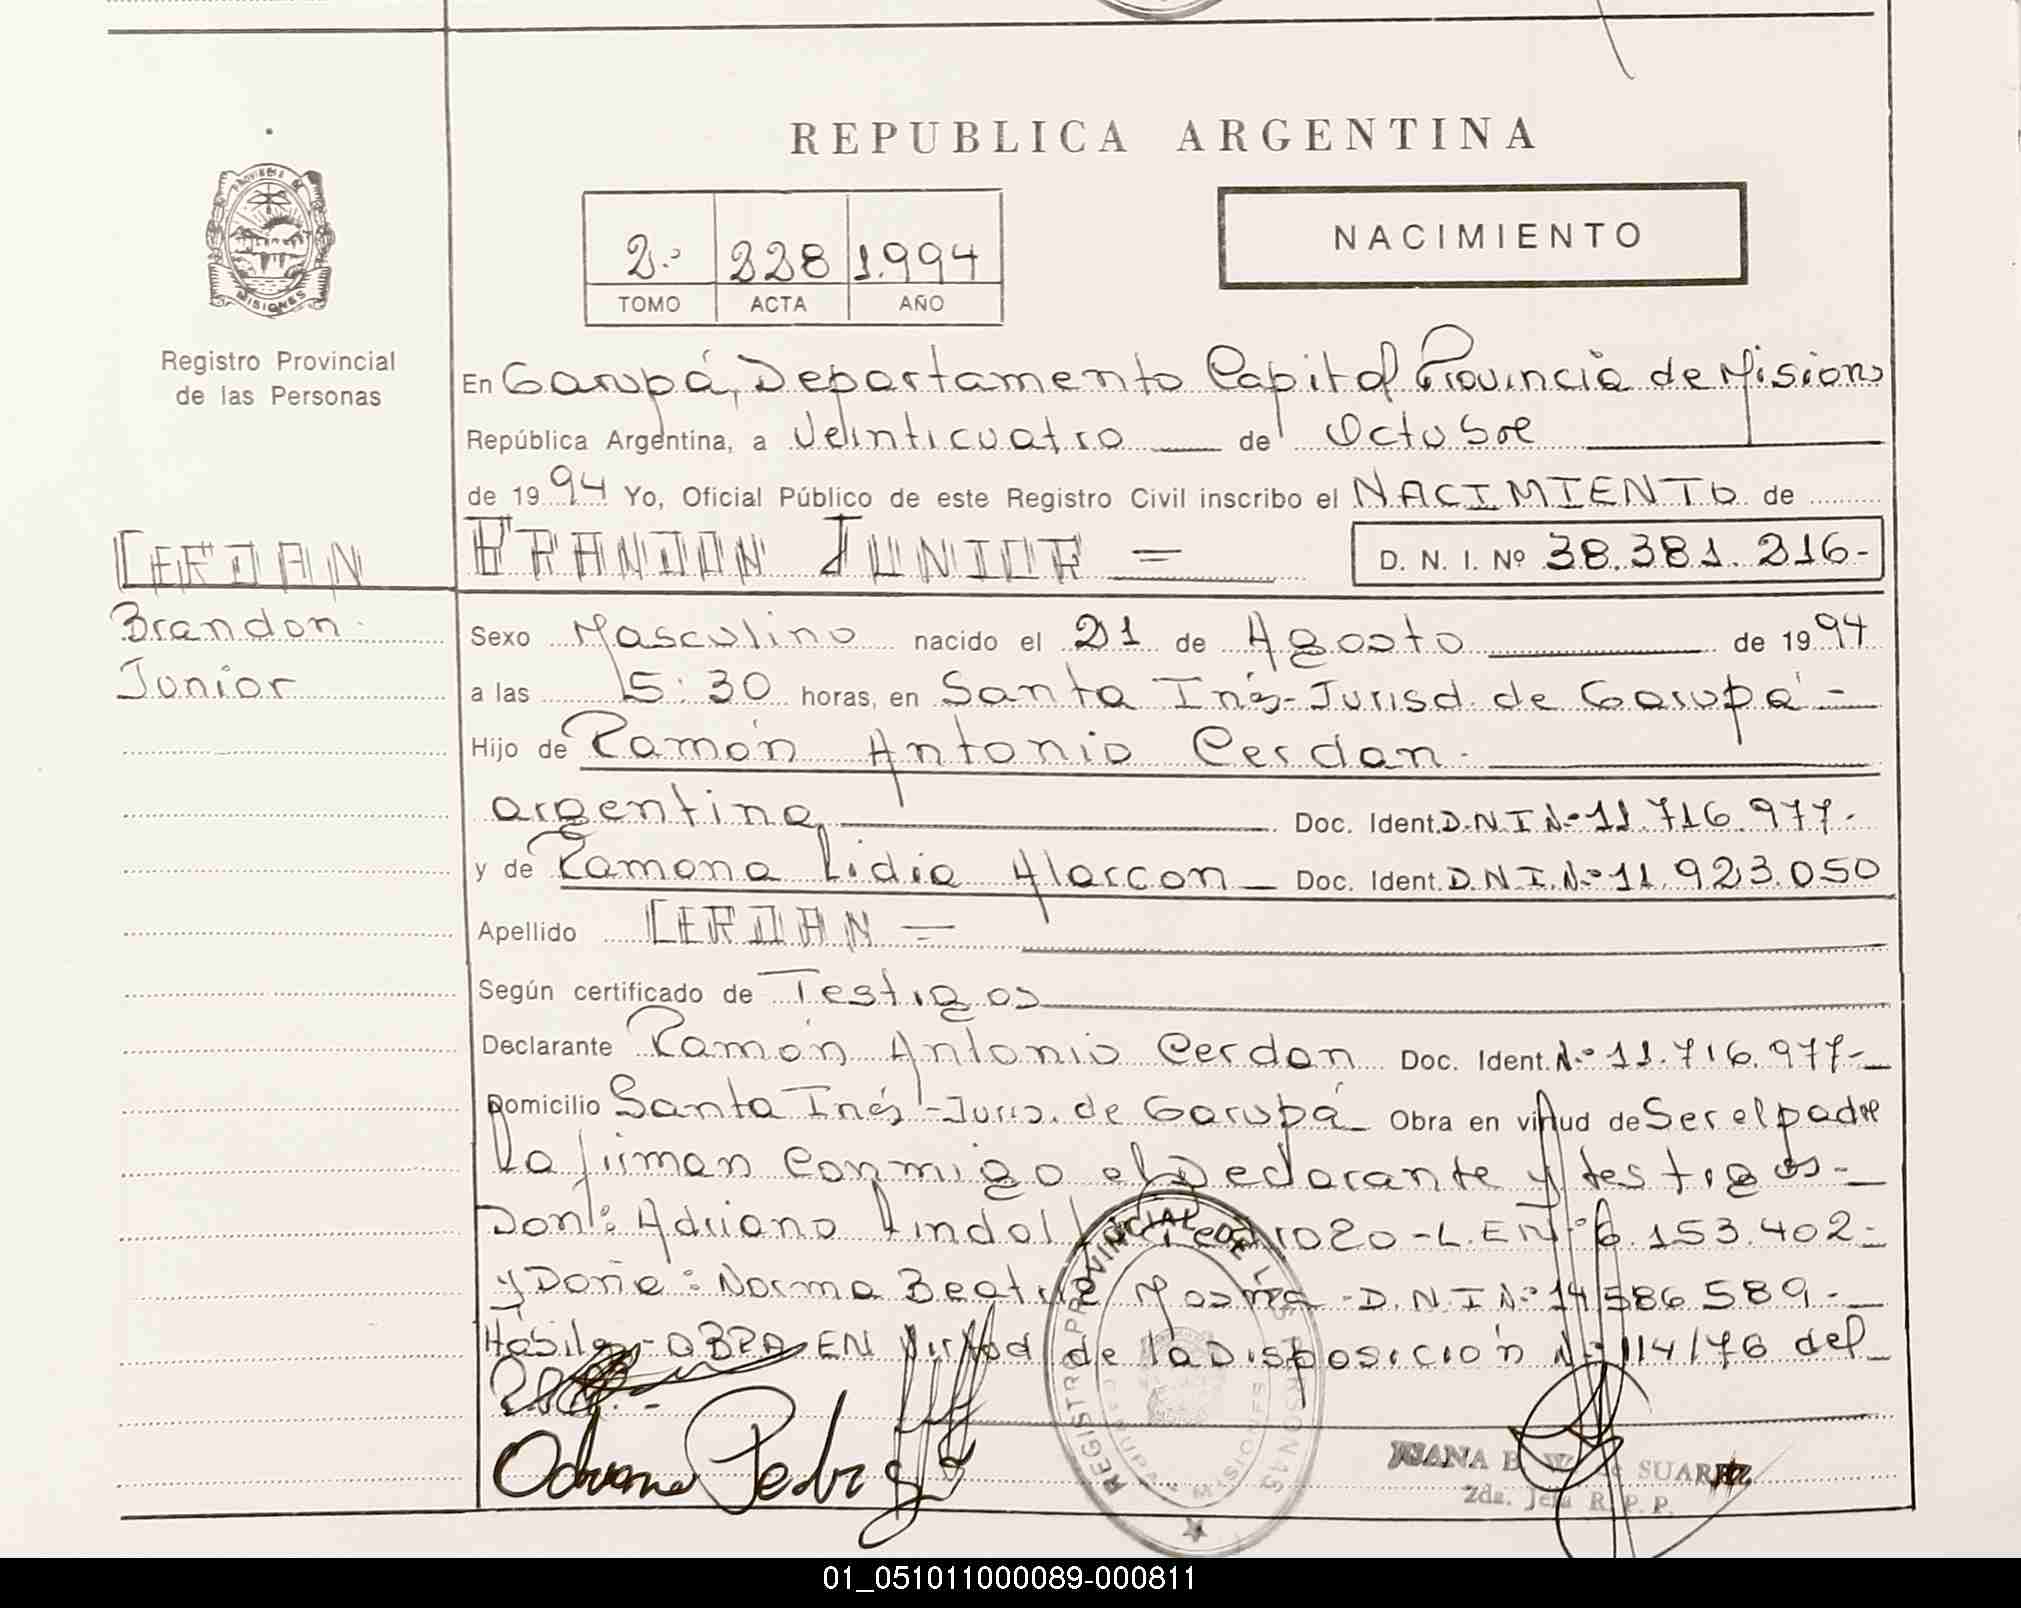 REPUBLICA ARGENTINA
PROVINCIA DE
MISIONES
Registro Provincial
de las Personas
2.º 228 1.994
TOMO ACTA AÑO
NACIMIENTO
En Garupá, Departamento Capital Provincia de Misiones
República Argentina, a Veinticuatro de Octubre
de 1994 Yo, Oficial Público de este Registro Civil inscribo el NACIMIENTO de
CERDAN
BRANDON JUNIOR = D. N. I. Nº 38.381.216-
Brandon
Junior
Sexo Masculino nacido el 21 de Agosto de 1994
a las 5:30 horas, en Santa Inés-Jurisd. de Garupá-
Hijo de Ramón Antonio Cerdan.
argentina Doc. Ident. D.N.I Nº 11.716.977-
y de Ramona Lidia Alarcon Doc. Ident. D.N.I. Nº 11.923.050
Apellido CERDAN =
Según certificado de Testigos
Declarante Ramón Antonio Cerdan Doc. Ident. Nº 11.716.977-
Domicilio Santa Inés-Juris. de Garupá Obra en virtud de Ser el padre
La firman conmigo el Declarante y testigos-
Don: Adriano Lindol Pedrozo-L.E Nº 6.153.402-
y Doña: Norma Beatriz D.N.I Nº 14.586.589-
Hábiles-OBRA EN Virtud de la Disposición Nº 114/76 del
REGISTRO PROVINCIAL DE LAS PERSONAS
MISIONES
JUANA B. de SUAREZ
2da. Jefa R.P.P.
01_051011000089-000811